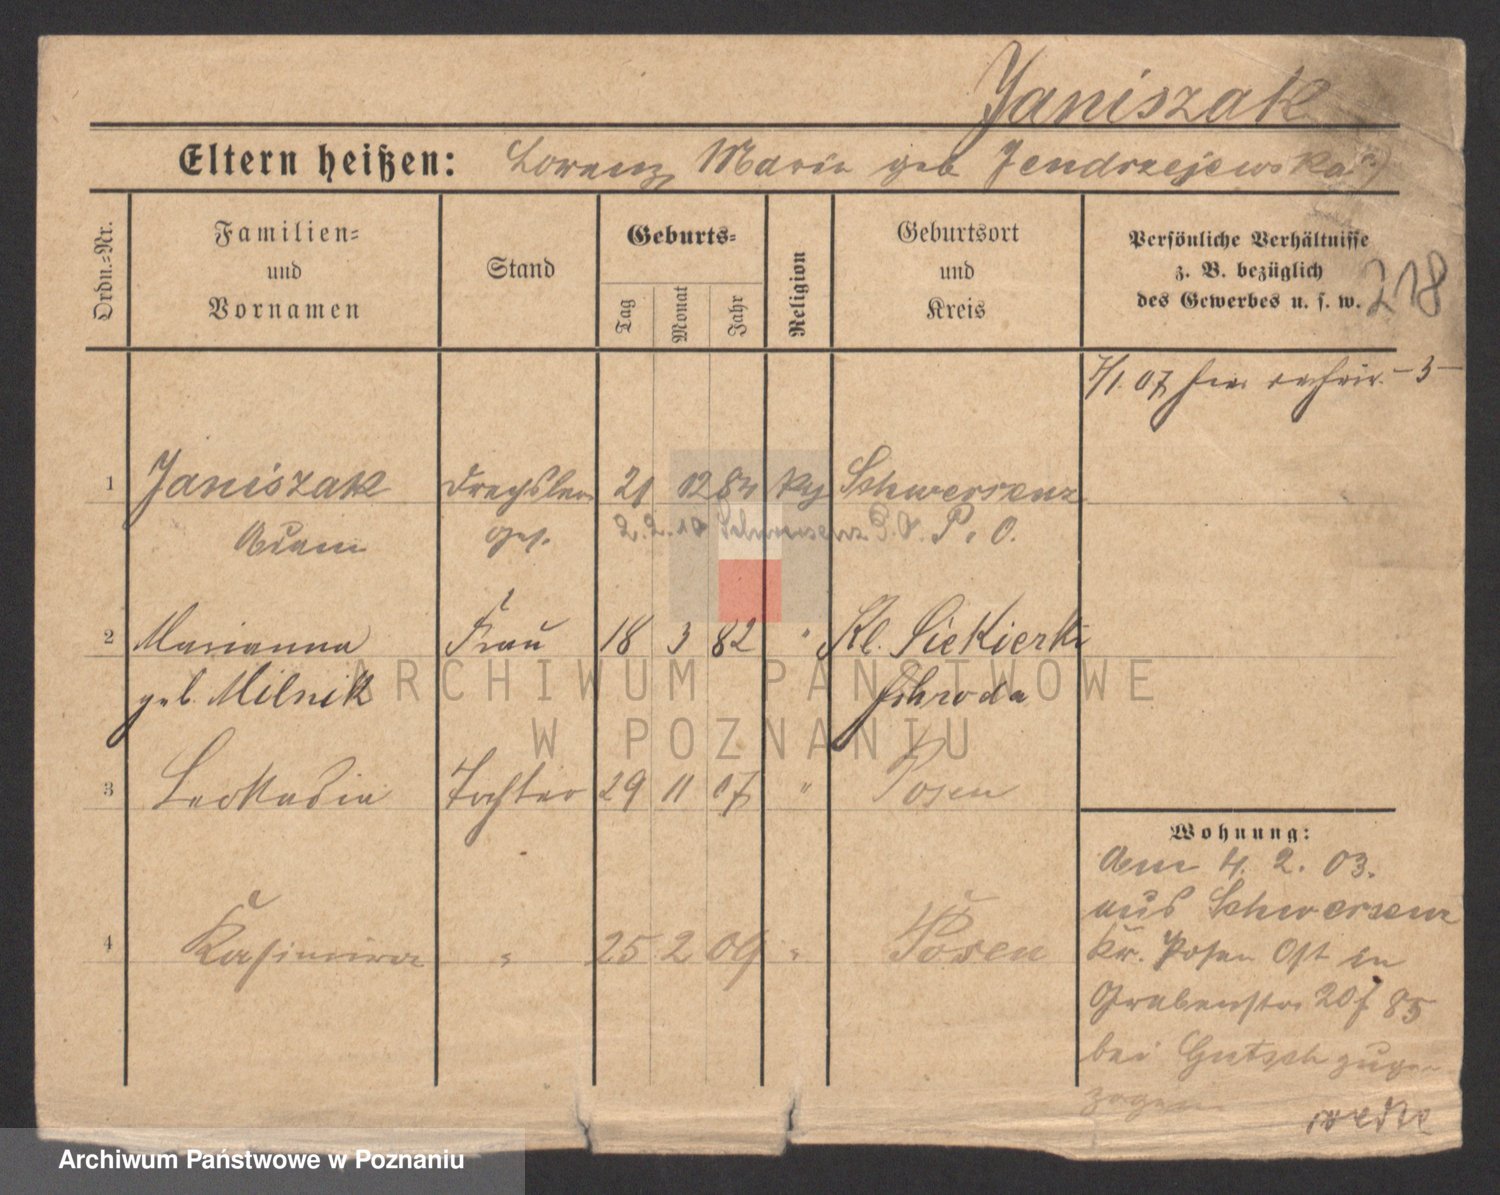 Janiszak
Eltern heißen: Lorenz Marie geb Jendrzejewska
Ordn.-Nr.
Familien-
und
Vornamen
Stand
Geburts-
Tag
Monat
Jahr
Religion
Geburtsort
und
Kreis
Persönliche Verhältnisse
z. B. bezüglich
des Gewerbes u. s. w.
218
1 Janiszak 21 12 84 Schwersenz
Adam 2.2.10 Schwersenz P. O.
2 Marianna Frau 18 3 82 " Kl. Siekierki
geb. Milnik Schroda
3 Leokadia Tochter 29 11 07 " Posen
4 Kasimira " 25 2 09 " Posen
Wohnung:
Am 4. 2. 03.
aus Schwersenz
Kr. Posen Ost in
Grabenstr 20
bei Gutsch zuge-
zogen
ARCHIWUM PAŃSTWOWE
W POZNANIU
Archiwum Państwowe w Poznaniu